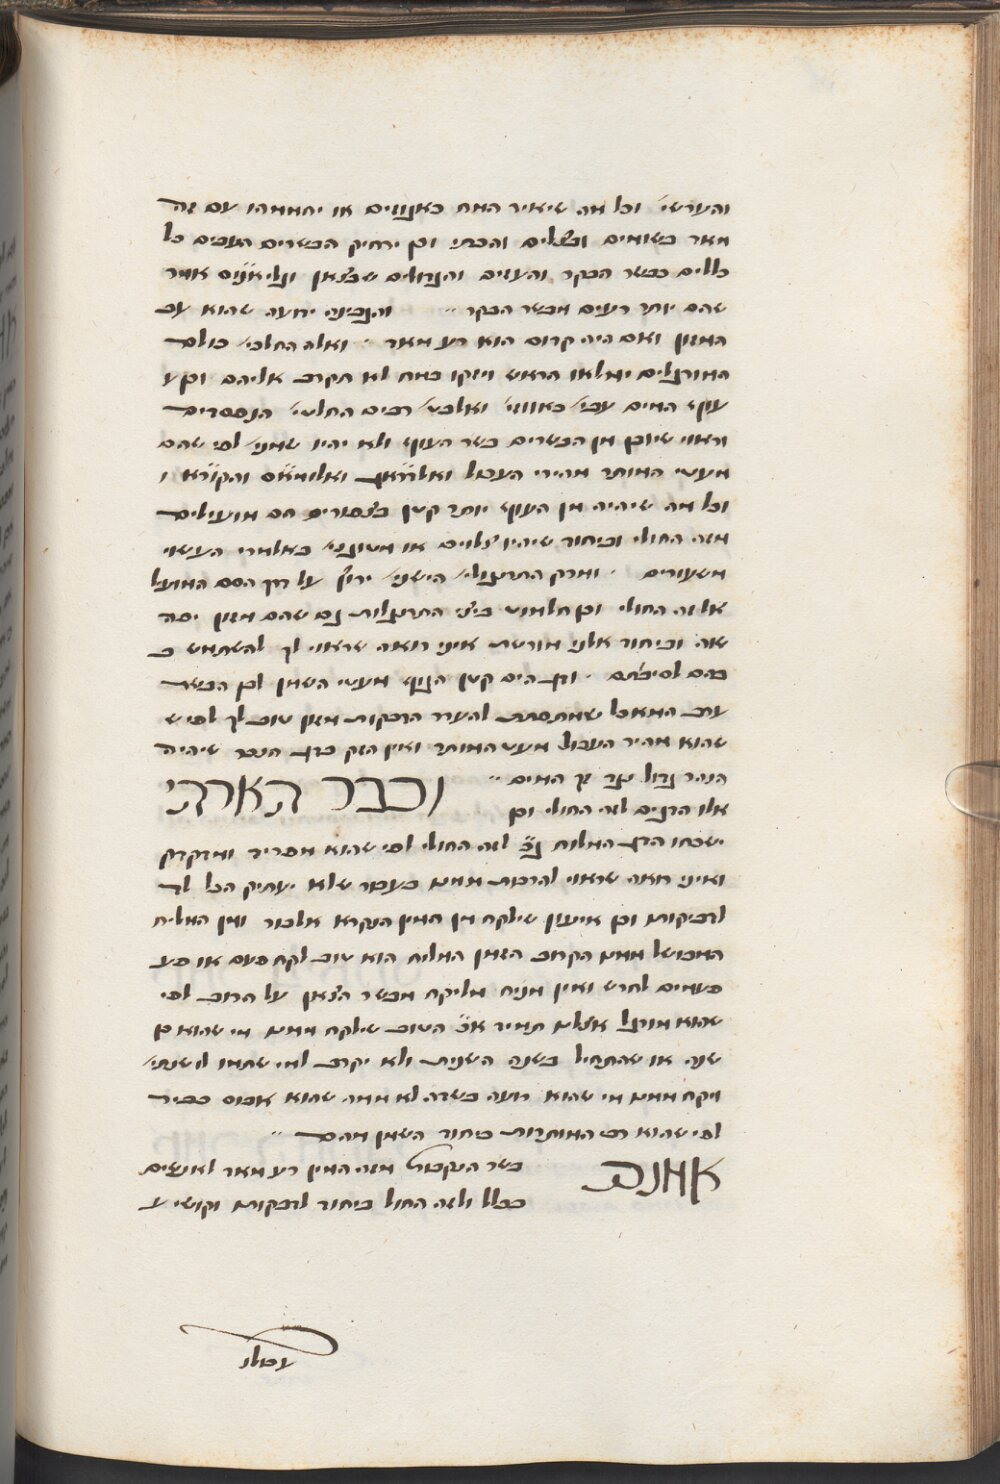 והערשי׳ וכל מה שיאיר המח כאגוזים או יחממהו עם זה
מאר כשומים ובצלים והכרתי וכן ירחיק הבשרים העבים כל
כללים כבשר הבקר והעזים והגדולים שבצאן וגליאנוס אמר
שהם יותר רעים מבשר הבקר והגבינה ידועה שהוא עב
המזון ואם היה קרום הוא רע מאר ואלה החלבי׳ כולם
המורגלים ימלאו הראש ויזקו במח לא תקרב אליהם וכן ע
עוף המים עבי׳ כאווזי׳ ואלבט׳ רבים החלטי׳ הנפסדים
וראוי שיהיו מן הבשרים בשר העוף ולא יהיו שמני׳ לפי שהם
מעטי המותר מהירי העכול
וכל מה שיהיה מן העוף יותר קטן כצפורים הם מועילים
מזה החולי וביחוד שיהיו צלוים או מטוגני׳ באלמרי העשוי
משעורים ומרק התרנגולי׳ הישני׳ על דרך הסם המועיל
אל זה החולי וכן חלמוני ביצי התרנגולות גם שהם מזון יפה
שוה וביחוד איני רואה שראוי לך להשתמש ב
בהם לסיבתם ודגי הים קטן הגוף מעטי השמן לבן הבשר
ערב המאכל שמתפתת להעדר הדבקות מזון טוב לך לפי ש
שהוא מהיר העכול מעט המותר ואין הזק בדג הנהר שיהיה
הנהר גדול המים
וכבר הארכתי
אלו הדגים לזה החולי וכן
ישבחו הדג המלוח לזה החולי לפי שהוא מפריד ומדקדק
ואיני רואה שראוי להרבות ממנו בעבור שלא יעתיק הכל לך
לדביקותו וכן שילקח מן המין הנקרא אלבור ומן המליח
המבושל ממנו הקרוב הזמן המלוח הוא טוב לקח פעם או פע
פעמים לחדש ואין מניח מליקח מבשר הצאן על הרוב לפי
שהוא מורגל אצלנו תמיד הטוב שילקח ממנו מי שהוא בן
שנה או שהתחיל בשנה השנית ולא יקרב למי שתמו לו שנתי׳
ויקח ממנו מי שהוא רועה בשדה לא ממה שהוא אבוס כבית
לפי שהוא רב המותרות ביחוד השמן מהם
אמנם
בשר הנקבות מזה המין רע מאר לאנשים
בכלל ולזה החולי ביחוד לדבקותו וקושי ע
עכולו